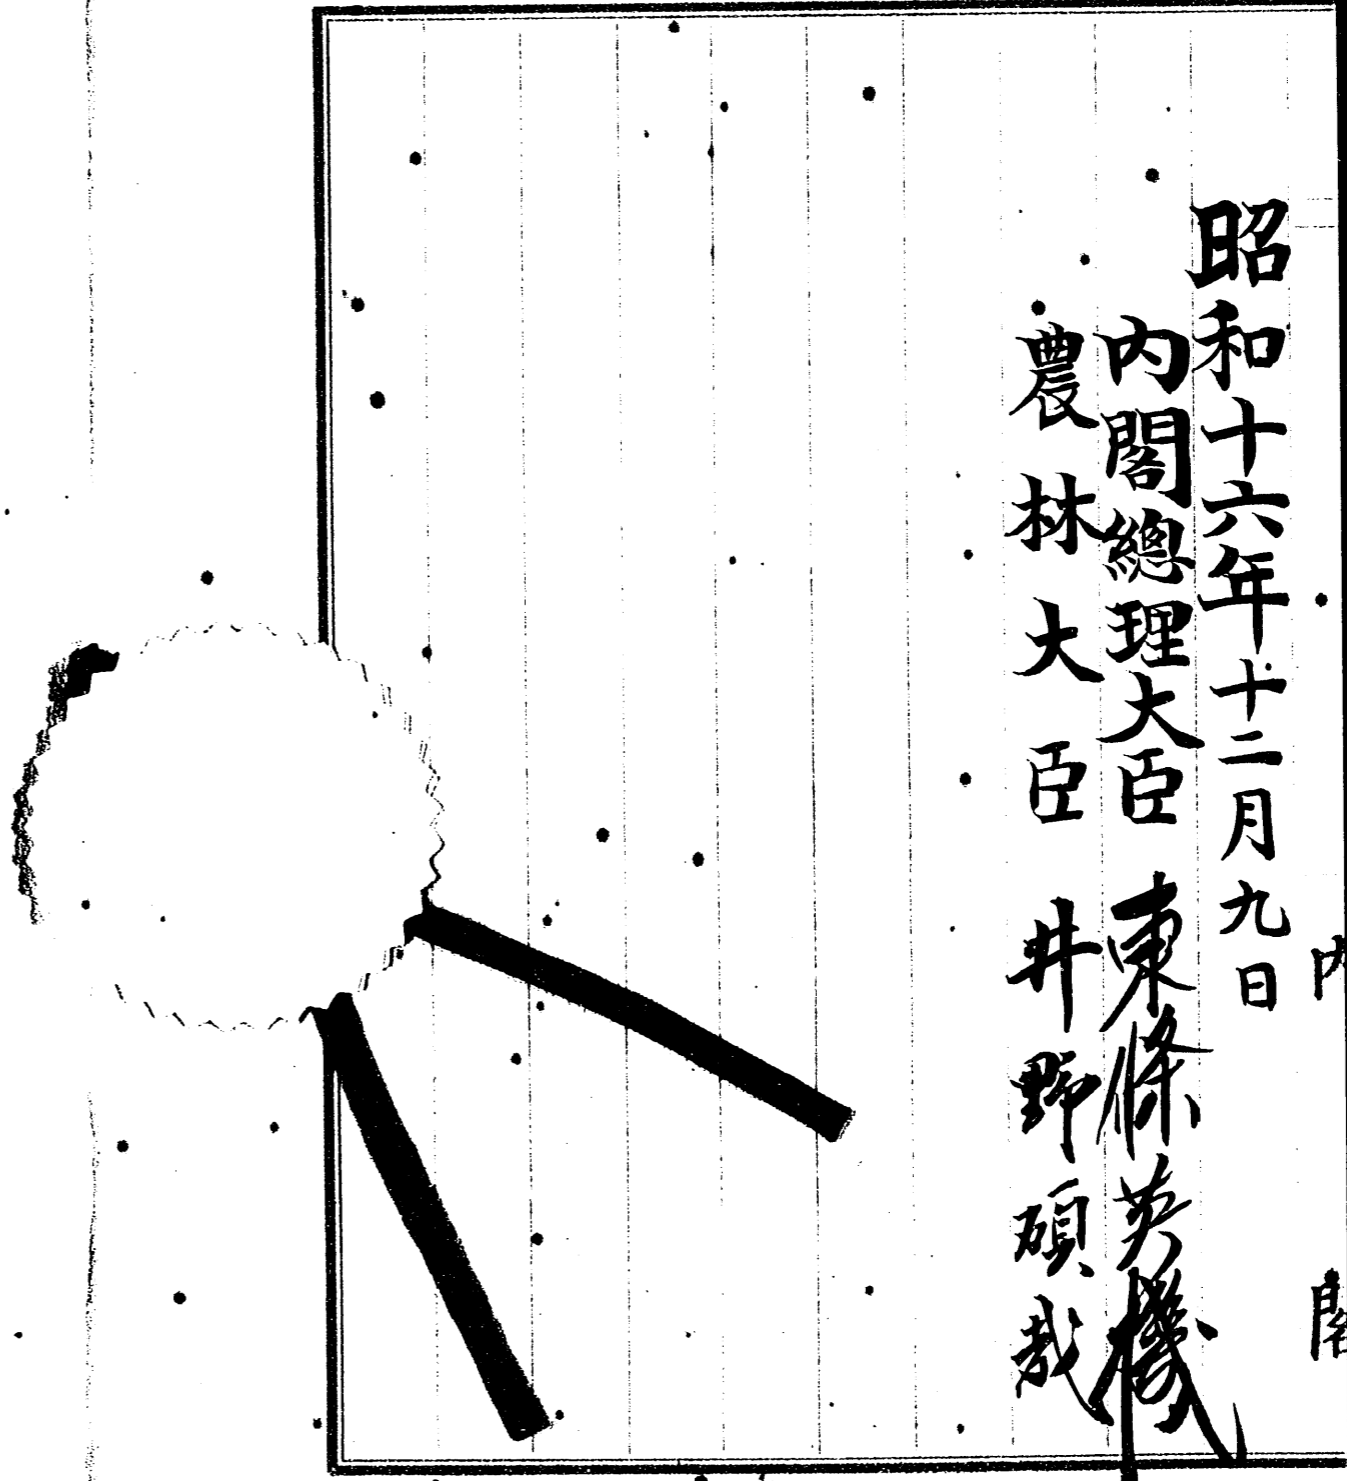 内閣
昭和十六年十二月九日
内閣總理大臣 東條英機
農林大臣 井野碩哉